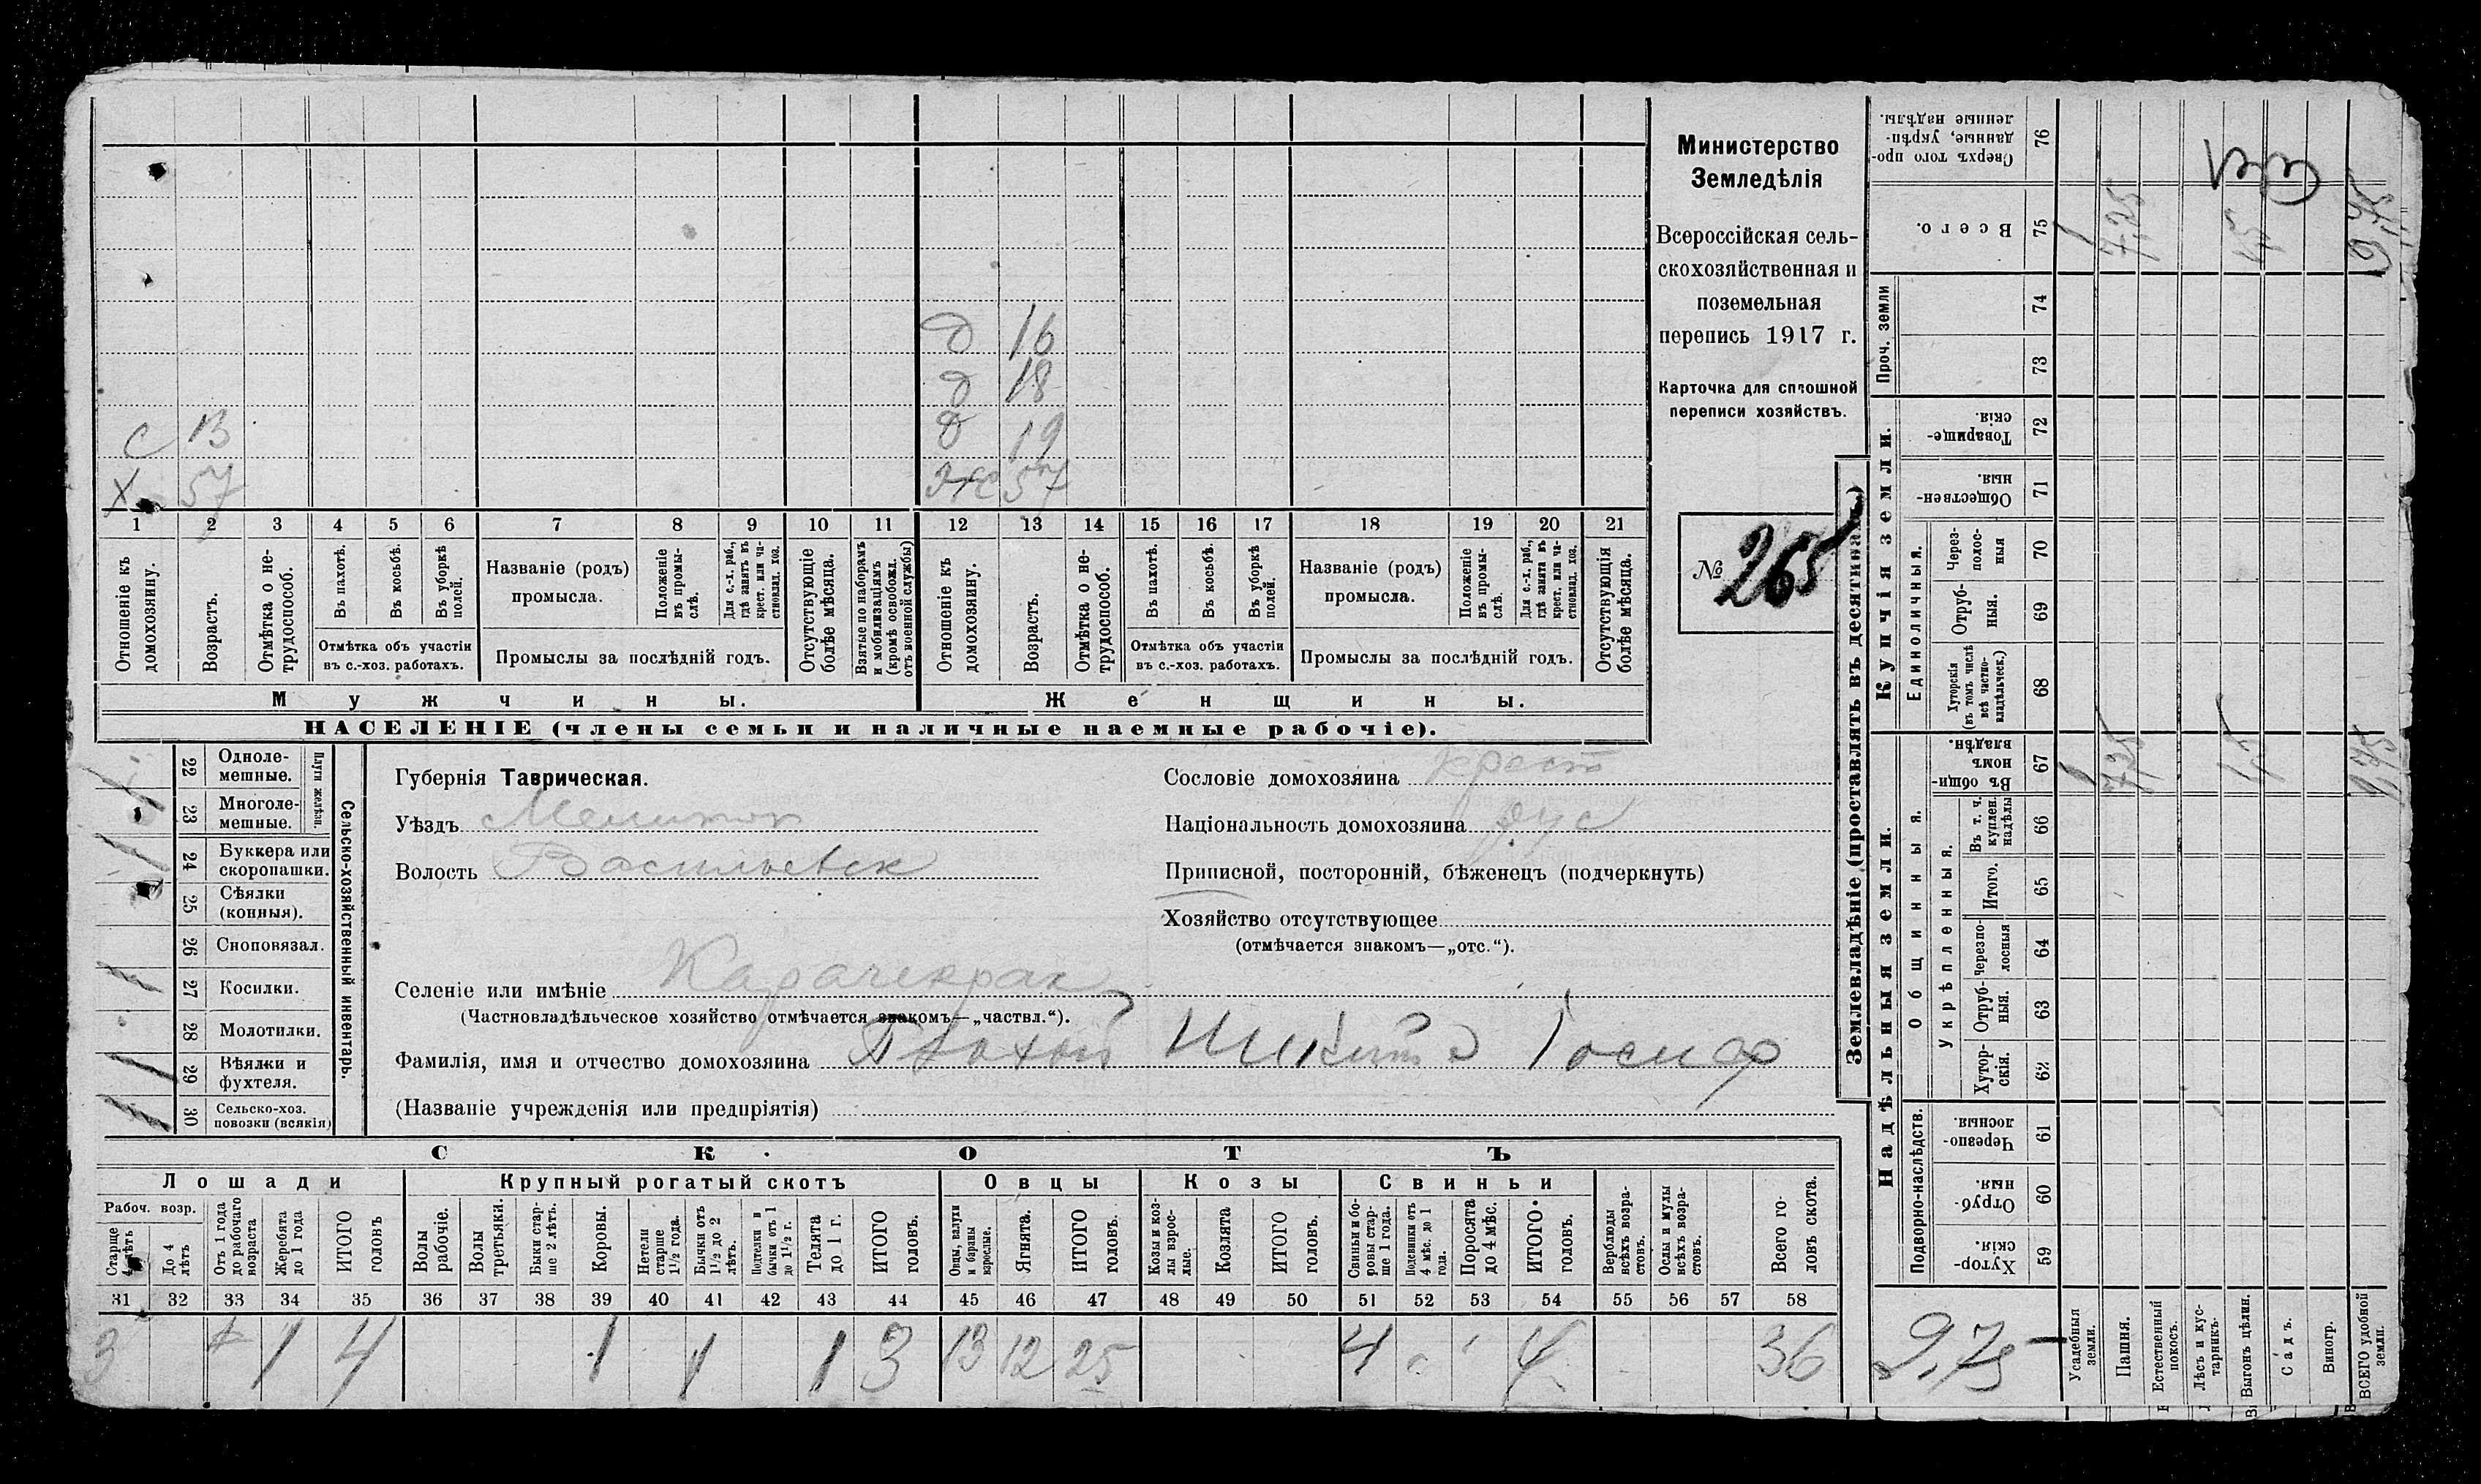 Министерство
Земледѣлія
Всероссійская сель-
скохозяйственная и
поземельная
перепись 1917 г.
Карточка для сплошной
переписи хозяйствъ.
№ 265
д 16
д 18
с 13 д 19
х 57 ж 57
1 2 3 4 5 6 7 8 9 10 11 12 13 14 15 16 17 18 19 20 21
Отношеніе къ домохозяину.
Возрастъ.
Отмѣтка о не-трудоспособ.
Въ пахотѣ.
Въ косьбѣ.
Въ уборкѣ полей.
Отмѣтка объ участіи
въ с.-хоз. работахъ.
Названіе (родъ)
промысла.
Положеніе въ промы-слѣ.
Для с.-х. раб., гдѣ занятъ въ крест. или ча-стновлад. хоз.
Промыслы за послѣдній годъ.
Отсутствующіе болѣе мѣсяца.
Взятые по наборамъ и мобилизаціямъ (кромѣ освобожд. отъ военной службы)
Отношеніе къ домохозяину.
Возрастъ.
Отмѣтка о не-трудоспособ.
Въ пахотѣ.
Въ косьбѣ.
Въ уборкѣ полей.
Отмѣтка объ участіи
въ с.-хоз. работахъ.
Названіе (родъ)
промысла.
Положеніе въ промы-слѣ.
Для с.-х. раб., гдѣ занята въ крест. или ча-стновлад. хоз.
Промыслы за послѣдній годъ.
Отсутствующія болѣе мѣсяца.
Мужчины. Женщины.
НАСЕЛЕНІЕ (члены семьи и наличные наемные рабочіе).
22 Одноле-мешные.
23 Многоле-мешные.
Плуги желѣзн.
24 Буккера или скоропашки.
25 Сѣялки (конныя).
26 Сноповязал.
27 Косилки.
28 Молотилки.
29 Вѣялки и фухтеля.
30 Сельско-хоз. повозки (всякія)
Сельско-хозяйственный инвентарь.
Губернія Таврическая.
Уѣздъ Мелитоп
Волость Васильевск
Сословіе домохозяина крест
Національность домохозяина рус
Приписной, посторонній, бѣженецъ (подчеркнуть)
Хозяйство отсутствующее
(отмѣчается знакомъ—„отс.“).
Селеніе или имѣніе Карачекрак
(Частновладѣльческое хозяйство отмѣчается знакомъ—„частвл.“).
Фамилія, имя и отчество домохозяина Плохой Никита Іосиф
(Названіе учрежденія или предпріятія)
СКОТЪ
Лошади Крупный рогатый скотъ Овцы Козы Свиньи
Рабоч. возр.
Старше 4 лѣтъ
До 4 лѣтъ
Отъ 1 года до рабочаго возраста
Жеребята до 1 года
ИТОГО головъ
Волы рабочіе.
Волы третьяки.
Быки стар-ше 2 лѣтъ.
Коровы.
Нетели старше 1½ года.
Бычки отъ 1½ до 2 лѣтъ.
Подтелки и бычки отъ 1 до 1½ г.
Телята до 1 г.
ИТОГО головъ.
Овцы, валухи и бараны взрослые.
Ягнята.
ИТОГО головъ.
Козы и коз-лы взрос-лые.
Козлята
ИТОГО головъ.
Свиньи и бо-ровы стар-ше 1 года.
Подсвинки отъ 4 мѣс. до 1 года.
Поросята до 4 мѣс.
ИТОГО головъ.
Верблюды всѣхъ возра-стовъ.
Ослы и мулы всѣхъ возра-стовъ.
Всего го-ловъ скота.
31 32 33 34 35 36 37 38 39 40 41 42 43 44 45 46 47 48 49 50 51 52 53 54 55 56 57 58
3 1 4 1 1 1 3 13 12 25 4 4 36
Землевладѣніе (проставлять въ десятинахъ)
Надѣльныя земли. Купчія земли. Проч. земли
Подворно-наслѣдств.
Общинныя.
Укрѣпленныя.
Единоличныя.
Хутор-скія. 59
Отруб-ныя. 60
Черезпо-лосныя. 61
Хутор-скія. 62
Отруб-ныя. 63
Черезпо-лосныя 64
Итого. 65
Въ т. ч. куплен. надѣлы 66
Въ общи-номъ владѣн. 67
Хуторскія (въ томъ числѣ всѣ частно-владѣльческ.) 68
Отруб-ныя. 69
Через-полос-ныя 70
Обществен-ныя. 71
Товарище-скія. 72
73
74
Всего. 75
Сверхъ того про-данные, укрѣп-ленные надѣлы. 76
Усадебныя земли. 1 1
Пашня. 7,25 7,25
Естественный покосъ.
Лѣсъ и кус-тарникъ.
Выгонъ цѣлин. 1,5 1,5
Садъ.
Виногр.
ВСЕГО удобной земли. 9,75 9,75
9,75